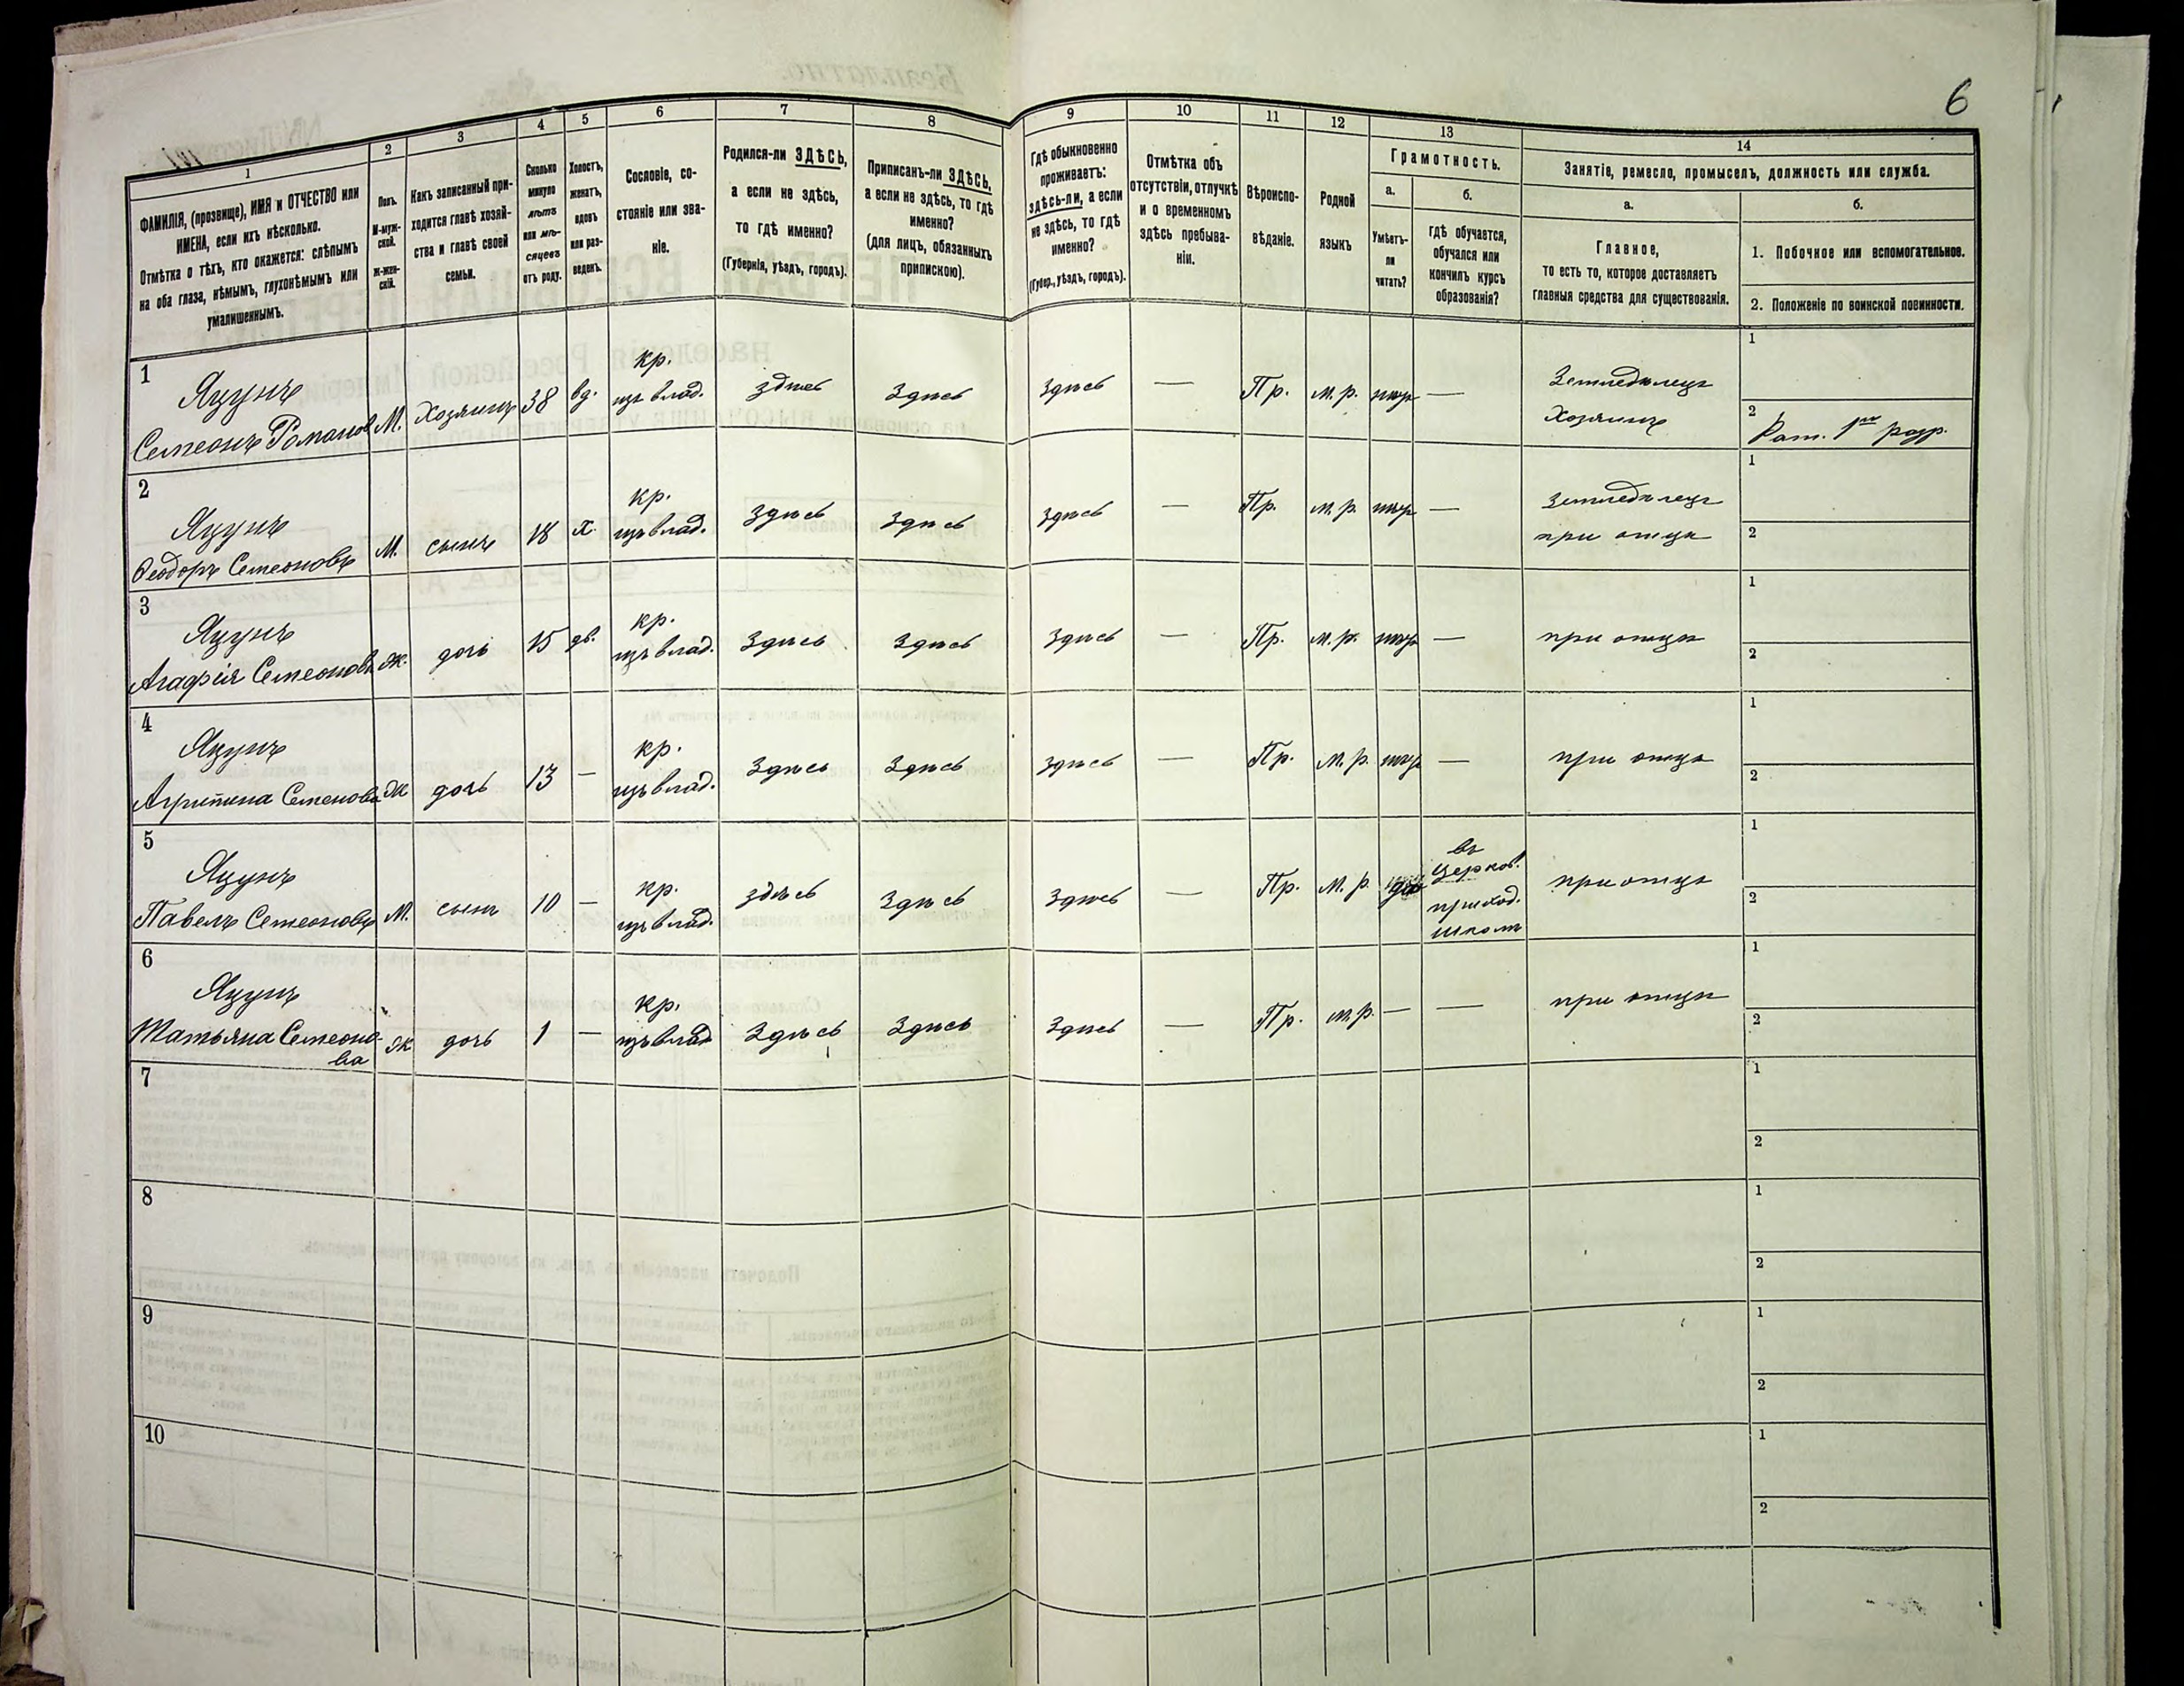 6
1
2
3
4
5
6
7
8
9
10
11
12
13
14
ФАМИЛІЯ, (прозвище), ИМЯ и ОТЧЕСТВО или
ИМЕНА, если ихъ нѣсколько.
Отмѣтка о тѣхъ, кто окажется: слѣпымъ
на оба глаза, нѣмымъ, глухонѣмымъ или
умалишеннымъ.
Полъ.
М-муж-
ской.
Ж-жен-
скій.
Какъ записанный при-
ходится главѣ хозяй-
ства и главѣ своей
семьи.
Сколько
минуло
лѣтъ
или мѣ-
сяцевъ
отъ роду.
Холостъ,
женатъ,
вдовъ
или раз-
веденъ.
Сословіе, со-
стояніе или зва-
ніе.
Родился-ли ЗДѢСЬ,
а если не здѣсь,
то гдѣ именно?
(Губернія, уѣздъ, городъ).
Приписанъ-ли ЗДѢСЬ,
а если не здѣсь, то гдѣ
именно?
(для лицъ, обязанныхъ
припискою).
Гдѣ обыкновенно
проживаетъ:
здѣсь-ли, а если
не здѣсь, то гдѣ
именно?
(Губер., уѣздъ, городъ).
Отмѣтка объ
отсутствіи, отлучкѣ
и о временномъ
здѣсь пребыва-
ніи.
Вѣроиспо-
вѣданіе.
Родной
языкъ
Грамотность.
а.
б.
Умѣетъ-
ли
читать?
гдѣ обучается,
обучался или
кончилъ курсъ
образованія?
Занятіе, ремесло, промыселъ, должность или служба.
а.
б.
Главное,
то есть то, которое доставляетъ
главныя средства для существованія.
1. Побочное или вспомогательное.
2. Положеніе по воинской повинности.
1
Яцунъ
Семеонъ Романов
М.
Хозяинъ
38
вд.
кр.
изъ влад.
здѣсь
Здѣсь
Здѣсь
—
Пр.
м. р.
нѣтъ
—
Земледѣлецъ
Хозяинъ
1
2
Рат. 1го разр.
2
Яцунъ
Ѳеодоръ Семеоновъ
М.
сынъ
18
х.
кр.
изъ влад.
Здѣсь
Здѣсь
Здѣсь
—
Пр.
м. р.
нѣтъ
—
Земледѣлецъ
при отцѣ
1
2
3
Яцунъ
Агафія Семеонова
ж.
дочь
15
дв.
кр.
изъ влад.
Здѣсь
Здѣсь
Здѣсь
—
Пр.
м. р.
нѣтъ
—
при отцѣ
1
2
4
Яцунъ
Агрипина Семенова
ж
дочь
13
—
кр.
изъ влад.
Здѣсь
Здѣсь
Здѣсь
—
Пр.
м. р.
нѣтъ
—
при отцѣ
1
2
5
Яцунъ
Павелъ Семеоновъ
М.
сынъ
10
—
кр.
изъ влад.
здѣсь
Здѣсь
Здѣсь
—
Пр.
м. р.
да
въ
церков.
приход.
школѣ
при отцѣ
1
2
6
Яцунъ
Татьяна Семеоно-
ва
ж
дочь
1
—
кр.
изъ влад
Здѣсь
Здѣсь
Здѣсь
—
Пр.
м. р.
—
—
при отцѣ
1
2
7
1
2
8
1
2
9
1
2
10
1
2